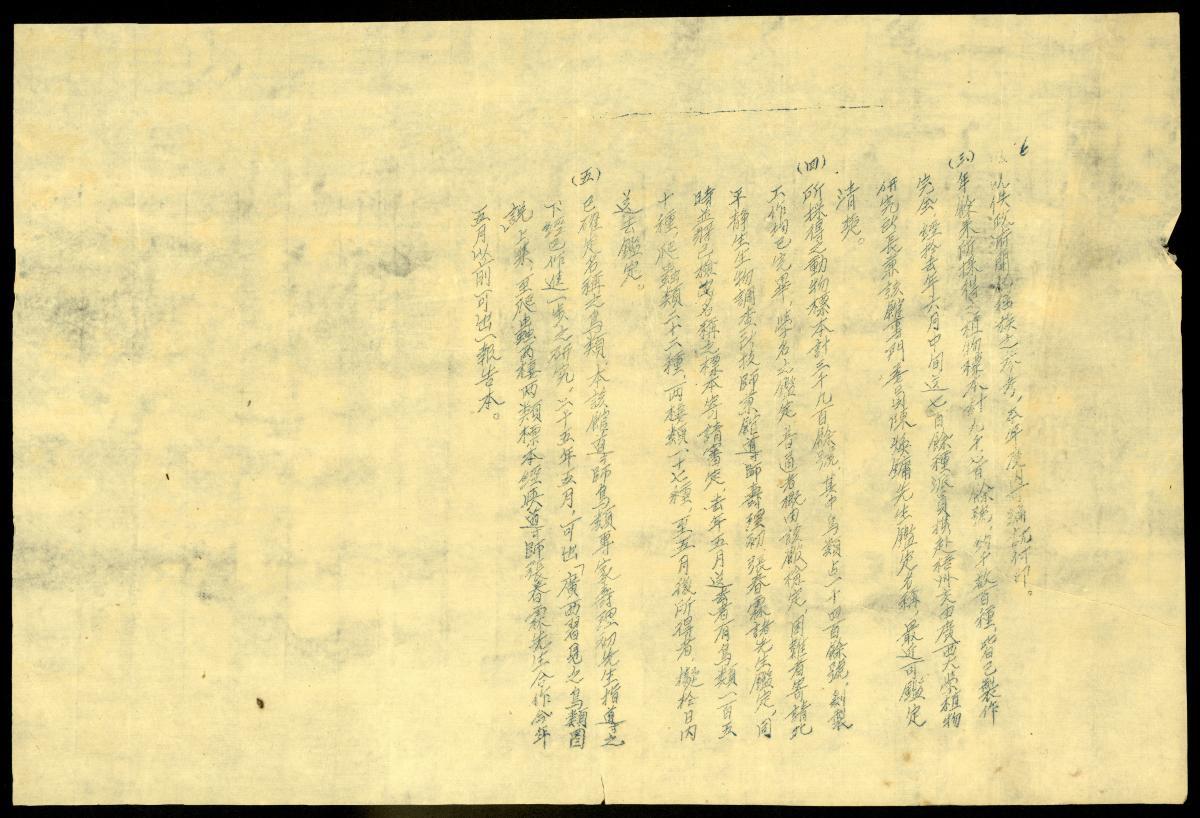 以供政府開化猺族之參考，本年度
(三)年餘來所採得之植物標本計九千六百餘號，約千數百種，皆已製作
完全，經於去年六月中間送七百餘種派員携赴梧州交由廣西大學植物
研究所長兼該館專門委員陳煥鏞先生鑑定名稱，最近可鑑定
清楚。
(四)所採得之動物標本計三千九百餘號，其中鳥類占一千四百餘號，剝製
工作均已完畢，學名之鑑定普通者概由該館檢定，困難者寄請北
平靜生生物調查所技師兼館導師壽理初、張春霖諸先生鑑定，同
時並將已檢出名稱之標本寄請審定，去年五月送去者有鳥類一百五
十種，爬蟲類二十二種，兩棲類一十七種，至五月後所得者，擬於日內
送去鑑定。
(五)已確定名稱之鳥類，本該館導師鳥類專家壽理初先生指導之
下，經已作進一步之研究。二十五年五月，可出「廣西習見之鳥類圖
說」上集，至爬蟲兩棲兩類標本經與導師張春霖先生合作今年
五月以前可出一報告本。